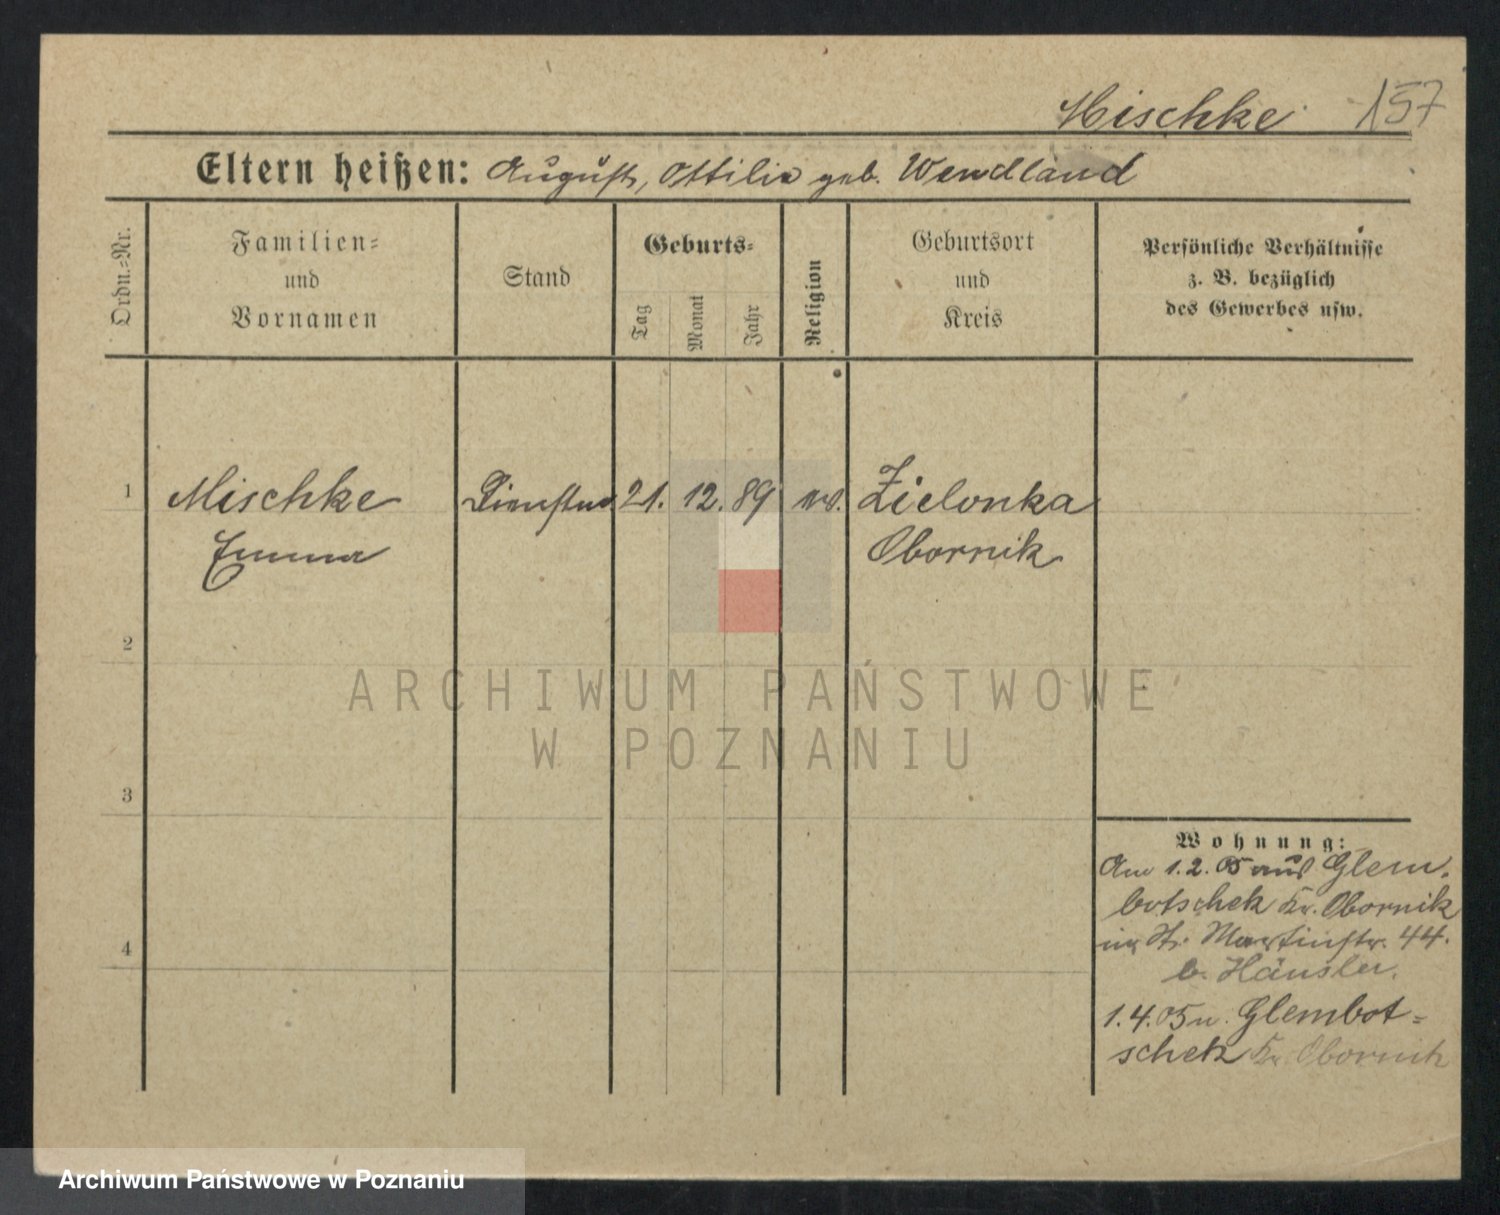 Mischke 157
Eltern heißen: August, Ottilie geb. Wendland
Ordn.=Nr.
Familien=
und
Vornamen
Stand
Geburts=
Tag
Monat
Jahr
Religion
Geburtsort
und
Kreis
Persönliche Verhältnisse
z. B. bezüglich
des Gewerbes usw.
1 Mischke 21. 12. 89 ev. Zielonka
Emma Obornik
2
3
4
ARCHIWUM PAŃSTWOWE
W POZNANIU
Wohnung:
Am 1.2.05 aus Glem.
botschek Kr. Obornik
St. Martinstr. 44.
b. Häusler.
1.4.05 n. Glembot=
schek Kr. Obornik
Archiwum Państwowe w Poznaniu